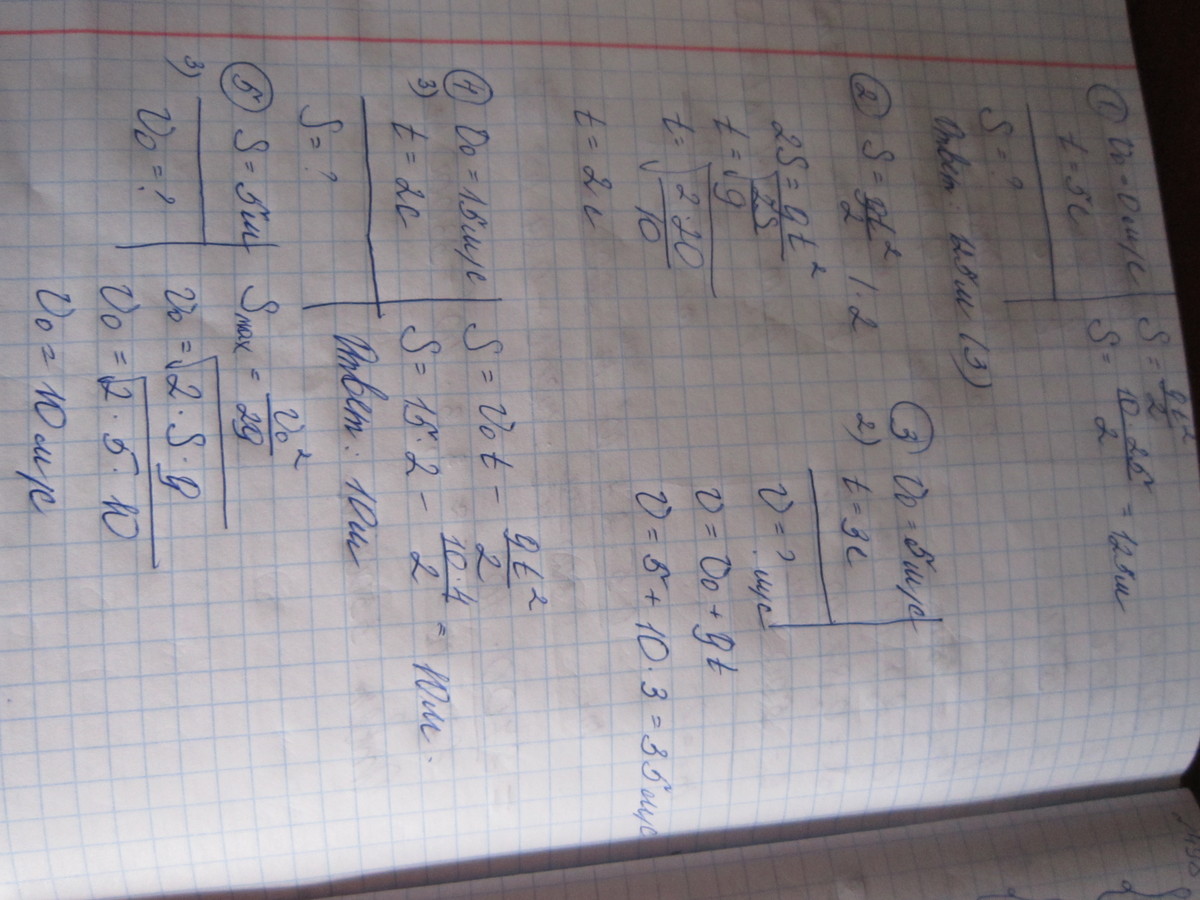 ① V₀ = 0 м/с
t = 5с
S = ?
S = gt²/2
S = 10·25/2 = 125м
Ответ: 125м (3)
② S = gt²/2 | · 2
2S = gt²
t = √2S/g
t = √2·20/10
t = 2с
③ V₀ = 5м/с
2) t = 3с
V = ? м/с
V = V₀ + gt
V = 5 + 10·3 = 35м/с
④ V₀ = 15м/с
3) t = 2с
S = ?
S = V₀t - gt²/2
S = 15·2 - 10·4/2 = 10м.
Ответ: 10м
⑤ S = 5м
3)
V₀ = ?
Smax = V₀²/2g
V₀ = √2·S·g
V₀ = √2·5·10
V₀ = 10м/с